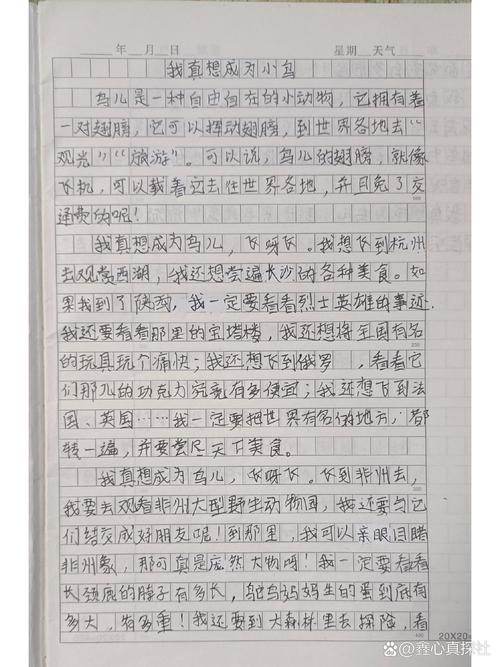 年 月 日 星期 天气
我真想成为小鸟
鸟儿是一种自由自在的小动物，它拥有着
一对翅膀，它可以挥动翅膀，到世界各地去“
观光”“旅游”。可以说，鸟儿的翅膀，就像
飞机，可以载着它去往世界各地，并且免了交
通费的呢！
我真想成为鸟儿，飞呀飞。我想飞到杭州
去观赏西湖，我还想尝遍长沙的各种美食。如
果我到了陕西，我一定要看看烈士英雄的事迹
我还要看看那里的宝塔楼，我还想将全国有名
的玩具玩个痛快；我还想飞到俄罗 ，看看它
们那儿的巧克力究竟有多便宜；我还想飞到法
国、英国……我一定要把世界有名的地方，都
转一遍，并要尝尽天下美食。
我真想成为鸟儿，飞呀飞。飞到非州去，
我要去观看非州大型野生动物园，我还要与它
们结交成好朋友呢！到那里，我可以亲眼目睹
非州象，那可真是庞然大物吗！我一定要看看
长颈鹿的脖子有多长，鸵鸟妈妈生的蛋到底有
多大，有多重！我还要到大森林里去探险，看
20X20
鑫心真探社